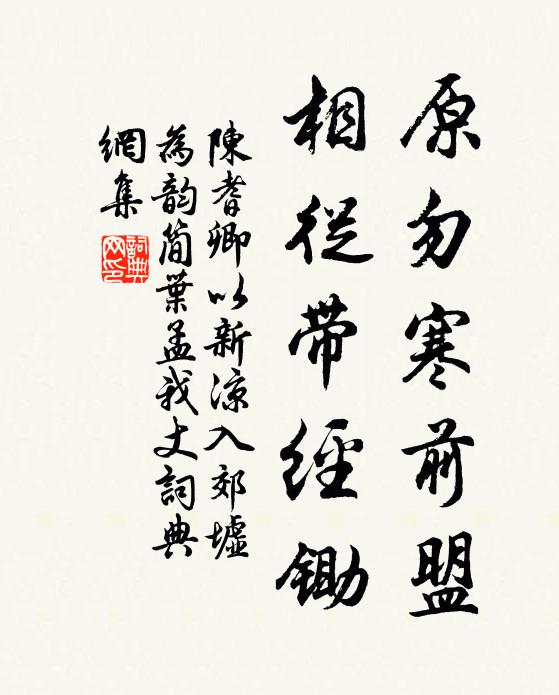 原勿寒前盟
相從帶經鋤
陳耆卿以新涼入郊墟
為韵簡葉孟我丈詞典
網集
詞典
网印